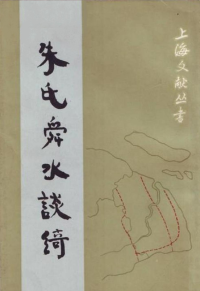 上海文献丛书
朱氏舜水談綺